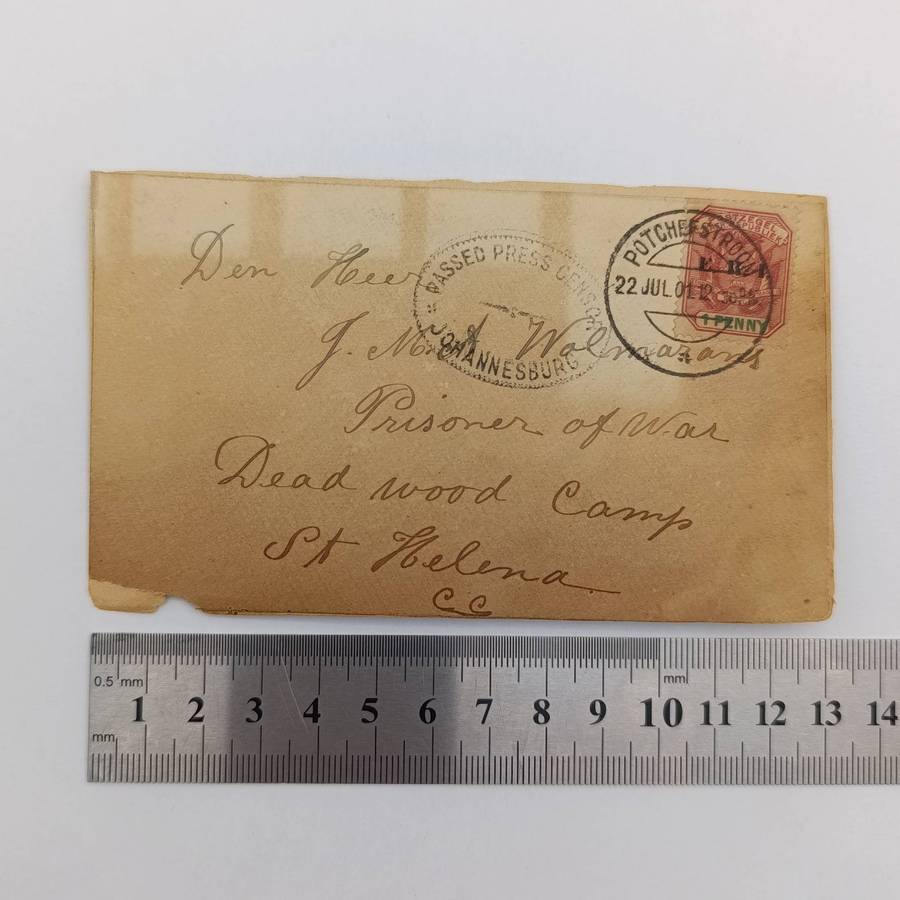 Den Heer
J. M. A. Wolmarans
Prisoner of War
Dead wood Camp
St Helena
CC
PASSED PRESS CENSOR
JOHANNESBURG
POTCHEFSTROOM
22 JUL 01 12
POSTZEGEL
E. R. I.
1 PENNY
0.5 mm
mm
mm
1 2 3 4 5 6 7 8 9 10 11 12 13 14